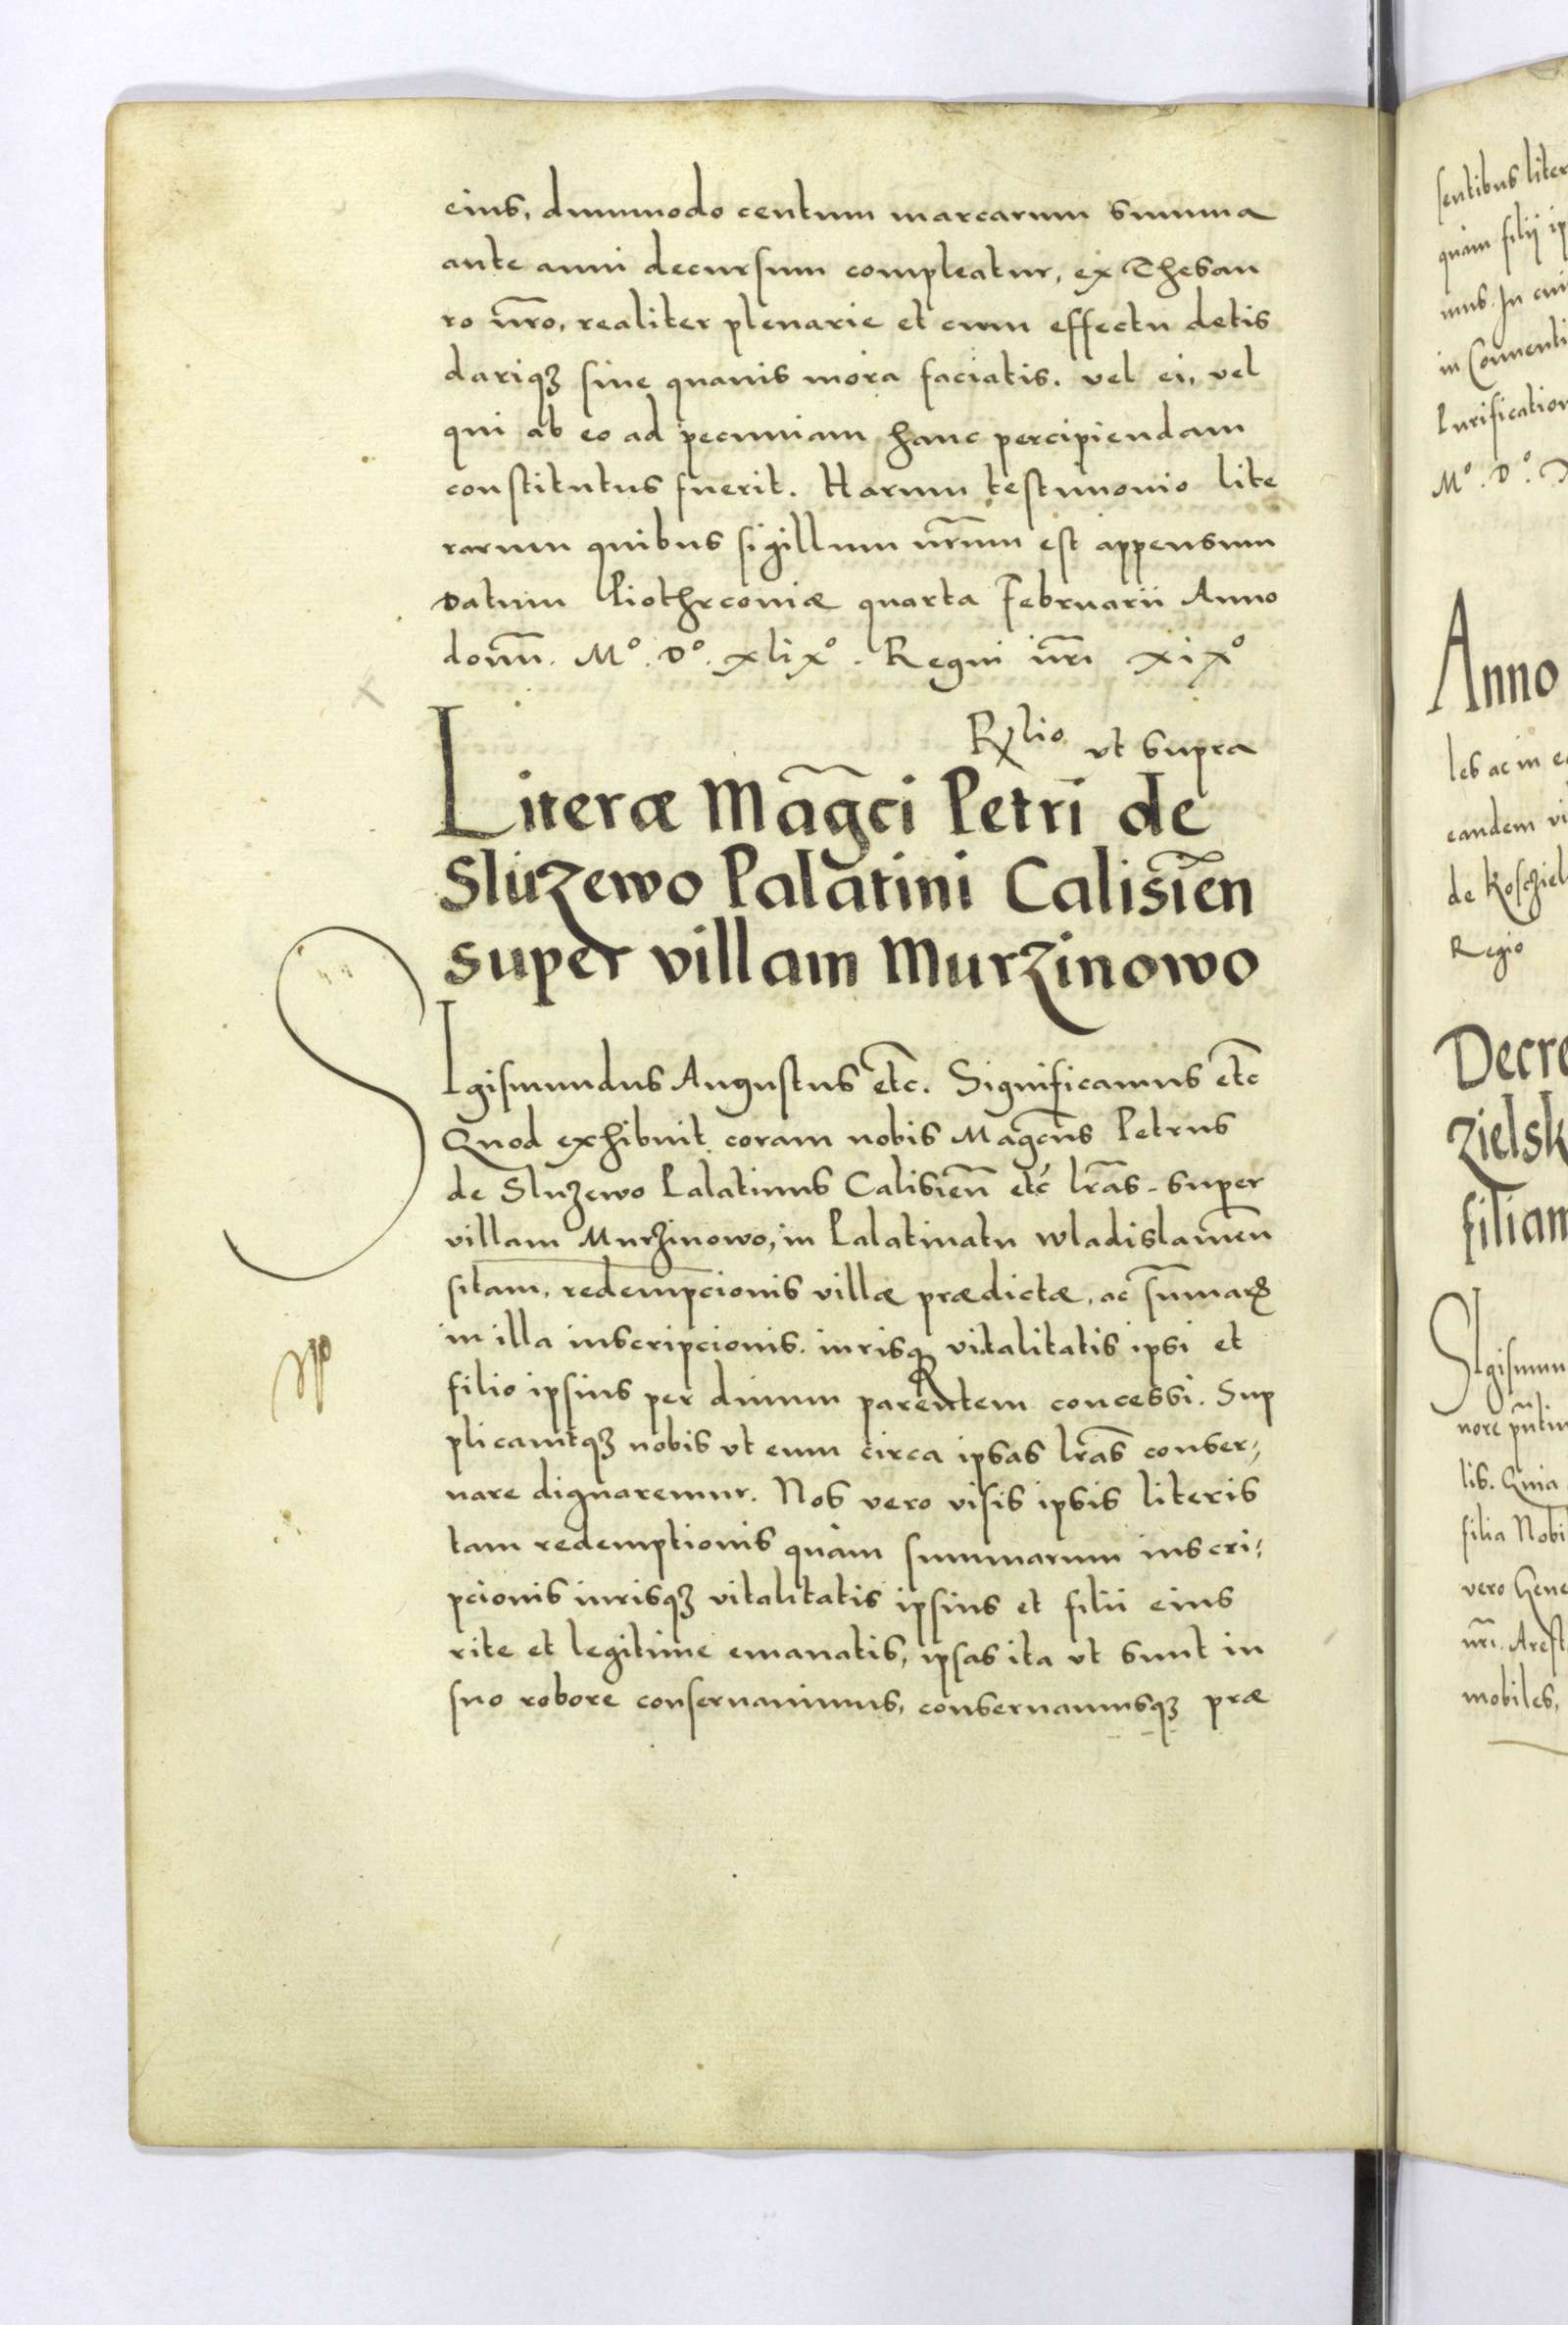 eius, dummodo centum marcarum summa
ante anni decursum compleatur, ex Thesau
ro nr̄o, realiter plenarie et cum effectu detis
dariqꝫ sine quauis mora faciatis. vel ei, vel
qui ab eo ad pecuniam hanc percipiendam
constitutus fuerit. Harum testimonio lite
rarum quibus sigillum nr̄um est appensum
Datum Piothrconiæ quarta Februarii Anno
domī. Mº. Dº. xlixº. Regni nr̄i xixº
Rlio ut supra
Literæ Mag̅ci Petri de
Sluzewo Palatini Calisien̄
super villam Murzinowo
SIgismundus Augustus etc̄. Significamus etc̄
Quod exhibuit coram nobis Magc̄us Petrus
de Sluzewo Palatinus Calisien̄ etć lr̄as super
villam Murzinowo, in Palatinatu wladislauien̄
sitam, redempcionis villæ prædictæ, ac sūmarꝝ
in illa inscripcionis. iurisqꝫ vitalitatis ipsi et
filio ipsius per diuum parentem concessi. Sup
plicauitqꝫ nobis ut eum circa ipsas lr̄as conser⸗
uare dignaremur. Nos vero visis ipsis literis
tam redemptionis quàm summarum inscri⸗
pcionis iurisqꝫ vitalitatis ipsius et filii eius
rite et legitime emanatis, ipsas ita ut sunt in
suo robore conseruauimus, conseruamusqꝫ præ
sentibus liter
quàm filii ip
mus. In cui
in Conuenti
Purification
Mº. Dº.
Anno
les ac in e
eandem vi
de Koscziel
Regio
Decre
zielsk
filiam
SIgismun
nore pn̄tiu
lis. Quia
filia Nobi
vero Gene
nr̄i. Arest
mobiles,